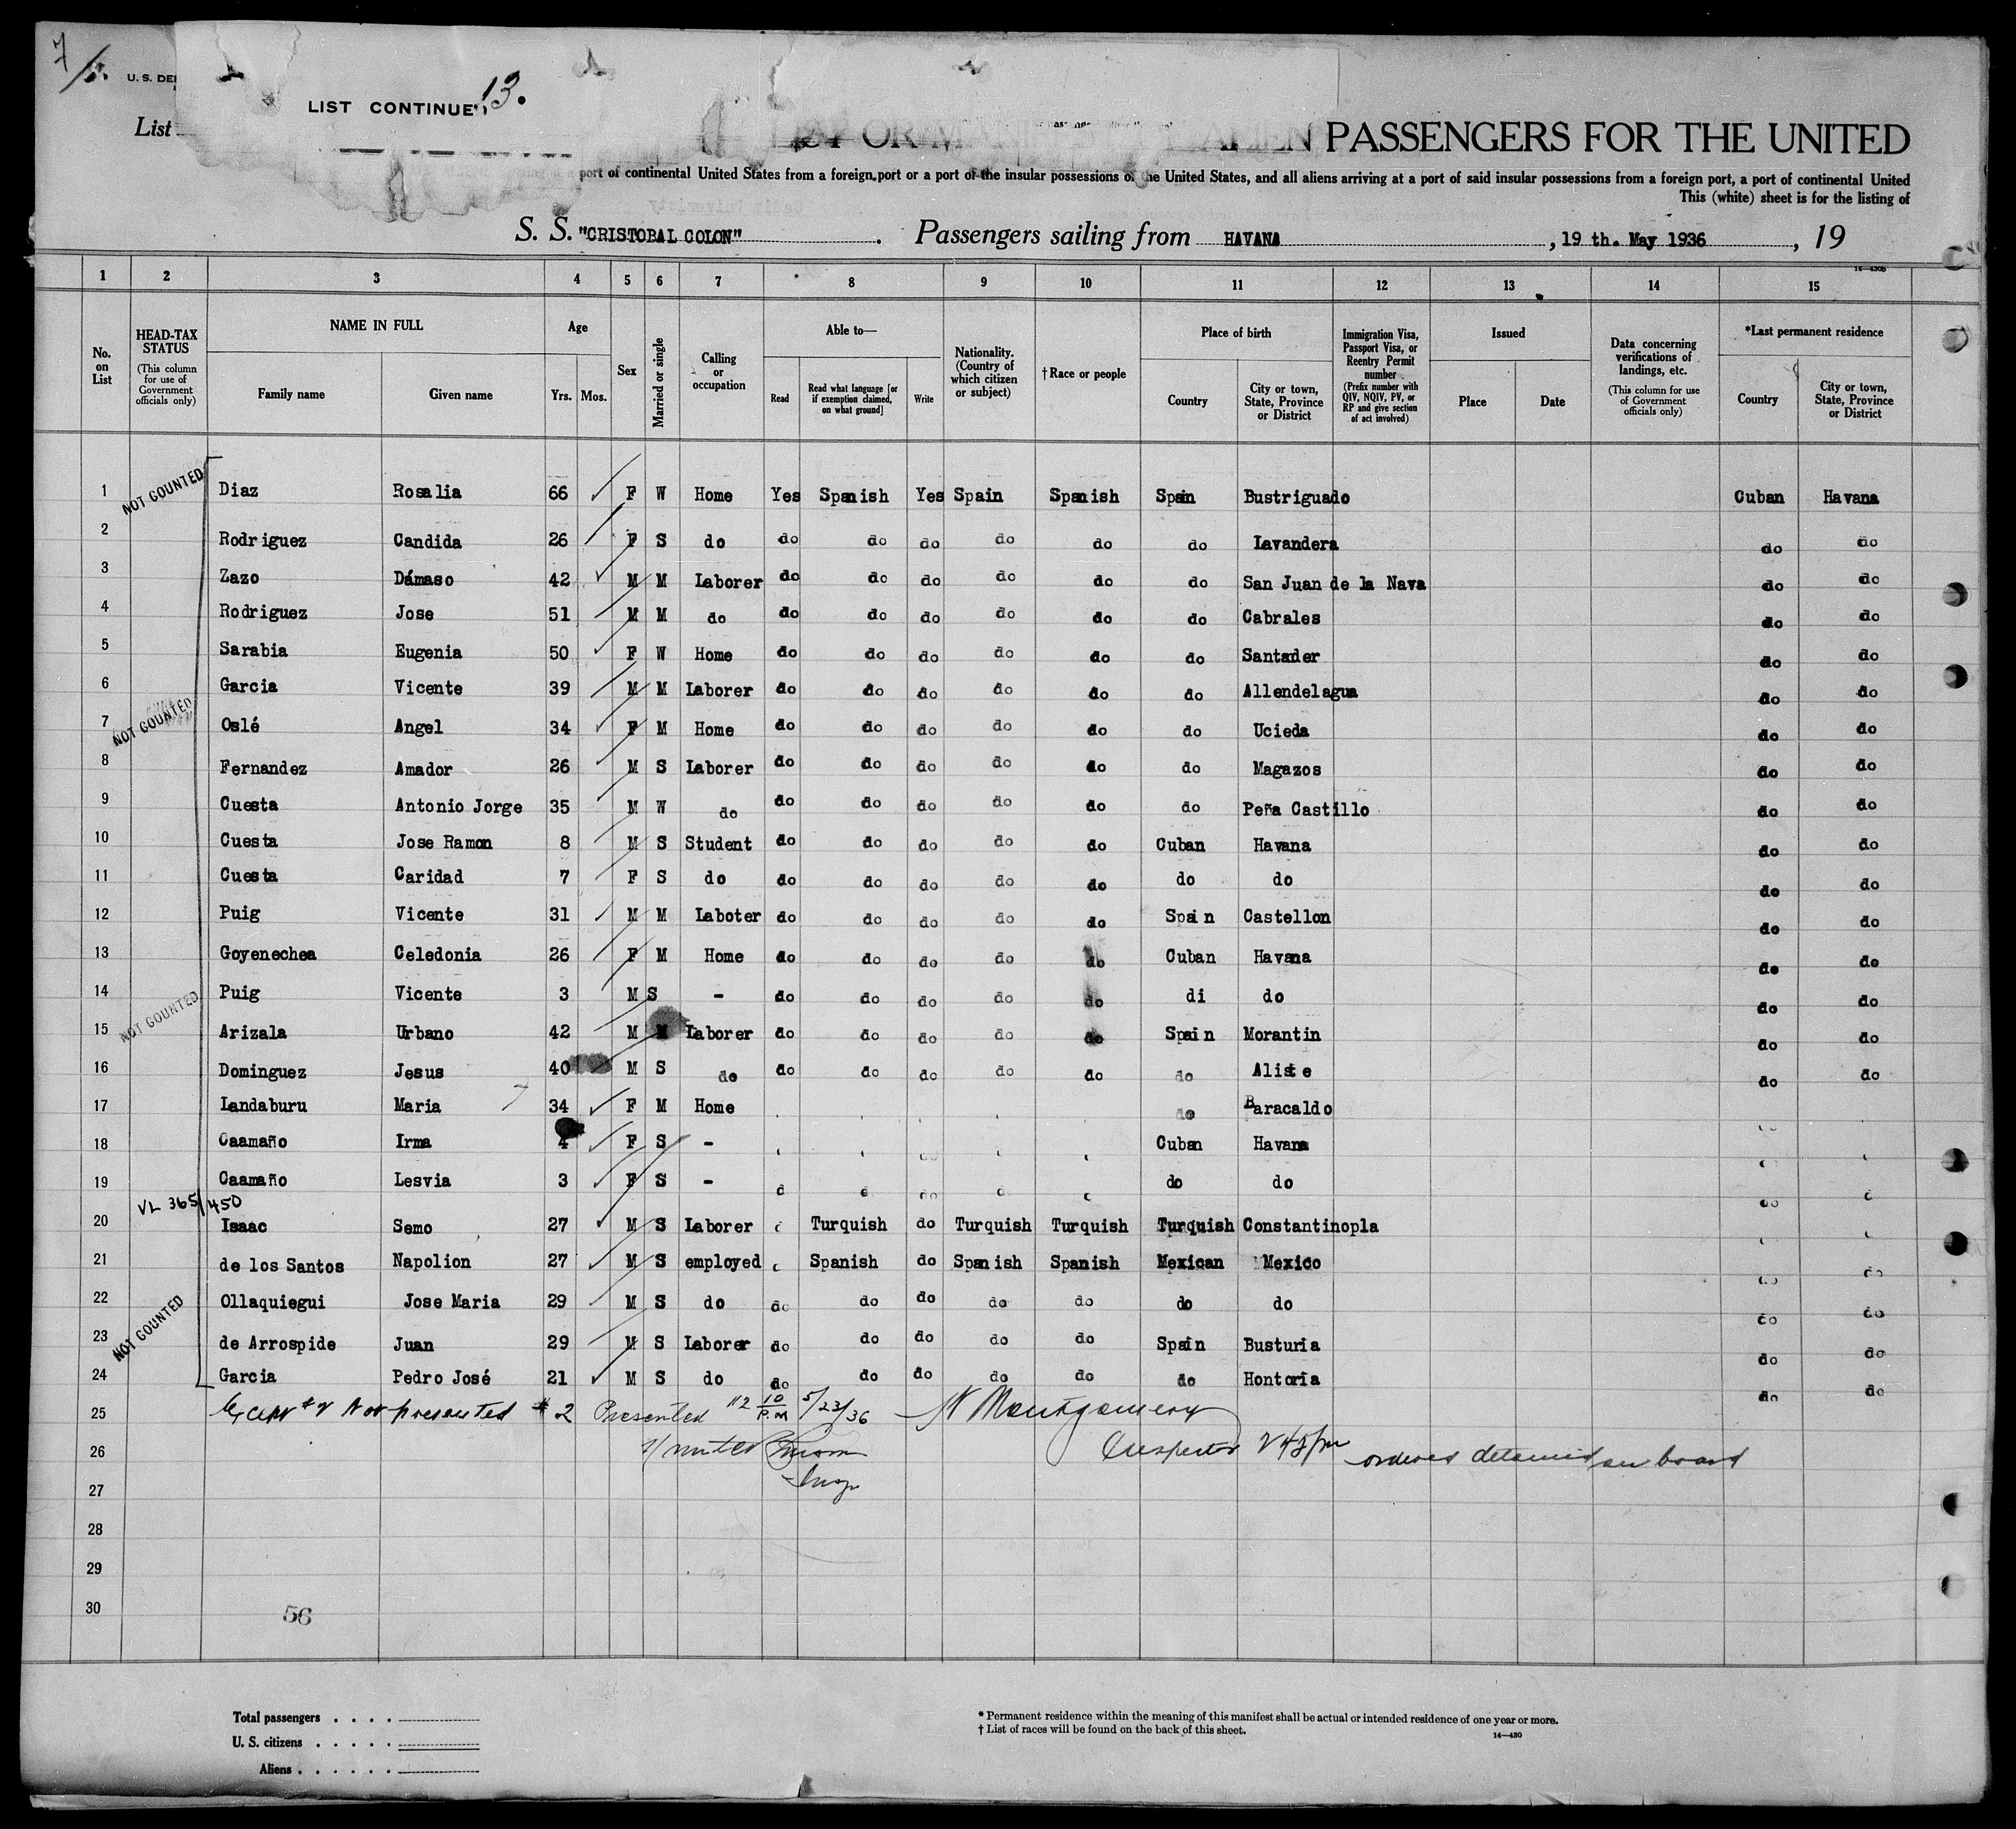 7/
U. S. DE
LIST CONTINUE 13.
List
LIST OR ALIEN PASSENGERS FOR THE UNITED
port of continental United States from a foreign port or a port of the insular possessions of the United States, and all aliens arriving at a port of said insular possessions from a foreign port, a port of continental United
This (white) sheet is for the listing of
S. S. "CRISTOBAL COLON" . Passengers sailing from HAVANA , 19 th. May 1936 , 19
14—430b
1 2 3 4 5 6 7 8 9 10 11 12 13 14 15
No. on List
HEAD-TAX STATUS
(This column for use of Government officials only)
NAME IN FULL
Family name Given name
Age
Yrs. Mos.
Sex
Married or single
Calling or occupation
Able to—
Read
Read what language [or if exemption claimed, on what ground]
Write
Nationality. (Country of which citizen or subject)
†Race or people
Place of birth
Country
City or town, State, Province or District
Immigration Visa, Passport Visa, or Reentry Permit number
(Prefix number with QIV, NQIV, PV, or RP and give section of act involved)
Issued
Place Date
Data concerning verifications of landings, etc.
(This column for use of Government officials only)
*Last permanent residence
Country
City or town, State, Province or District
1 NOT COUNTED Diaz Rosalia 66 F W Home Yes Spanish Yes Spain Spanish Spain Bustriguado Cuban Havana
2 Rodriguez Candida 26 F S do do do do do do do Lavandera do do
3 Zazo Dámaso 42 M M Laborer do do do do do do San Juan de la Nava do do
4 Rodriguez Jose 51 M M do do do do do do do Cabrales do do
5 Sarabia Eugenia 50 F W Home do do do do do do Santander do do
6 Garcia Vicente 39 M M Laborer do do do do do do Allendelagua do do
7 NOT COUNTED Oslé Angel 34 F M Home do do do do do do Ucieda do do
8 Fernandez Amador 26 M S Laborer do do do do do do Magazos do do
9 Cuesta Antonio Jorge 35 M W do do do do do do do Peña Castillo do do
10 Cuesta Jose Ramon 8 M S Student do do do do do Cuban Havana do do
11 Cuesta Caridad 7 F S do do do do do do do do do do
12 Puig Vicente 31 M M Laboter do do do do do Spain Castellon do do
13 Goyenechea Celedonia 26 F M Home do do do do do Cuban Havana do do
14 NOT COUNTED Puig Vicente 3 M S - do do do do do di do do do
15 Arizala Urbano 42 M M Laborer do do do do do Spain Morantin do do
16 Dominguez Jesus 40 M S do do do do do do do Aliste do do
17 Landaburu Maria 34 F M Home do Baracaldo
18 Caamaño Irma 4 F S - Cuban Havana
19 Caamaño Lesvia 3 F S - do do do do
VL 365/450
20 Isaac Semo 27 M S Laborer Turquish do Turquish Turquish Turquish Constantinopla
21 de los Santos Napolion 27 M S employed Spanish do Spanish Spanish Mexican Mexico do
22 Ollaquiegui Jose Maria 29 M S do do do do do do do do do do
23 NOT COUNTED de Arrospide Juan 29 M S Laborer do do do do do Spain Busturia do do
24 Garcia Pedro José 21 M S do do do do do do do Hontoria do do
25 Except #2 Not presented #2 Presented #2 10 P.M 5/23/36 Montgomery
26 Inspector 2 45 pm ordered detained on board
Insp
27
28
29
30
56
Total passengers . . . .
U. S. citizens . . . . .
Aliens . . . . . .
* Permanent residence within the meaning of this manifest shall be actual or intended residence of one year or more.
† List of races will be found on the back of this sheet.
14—430